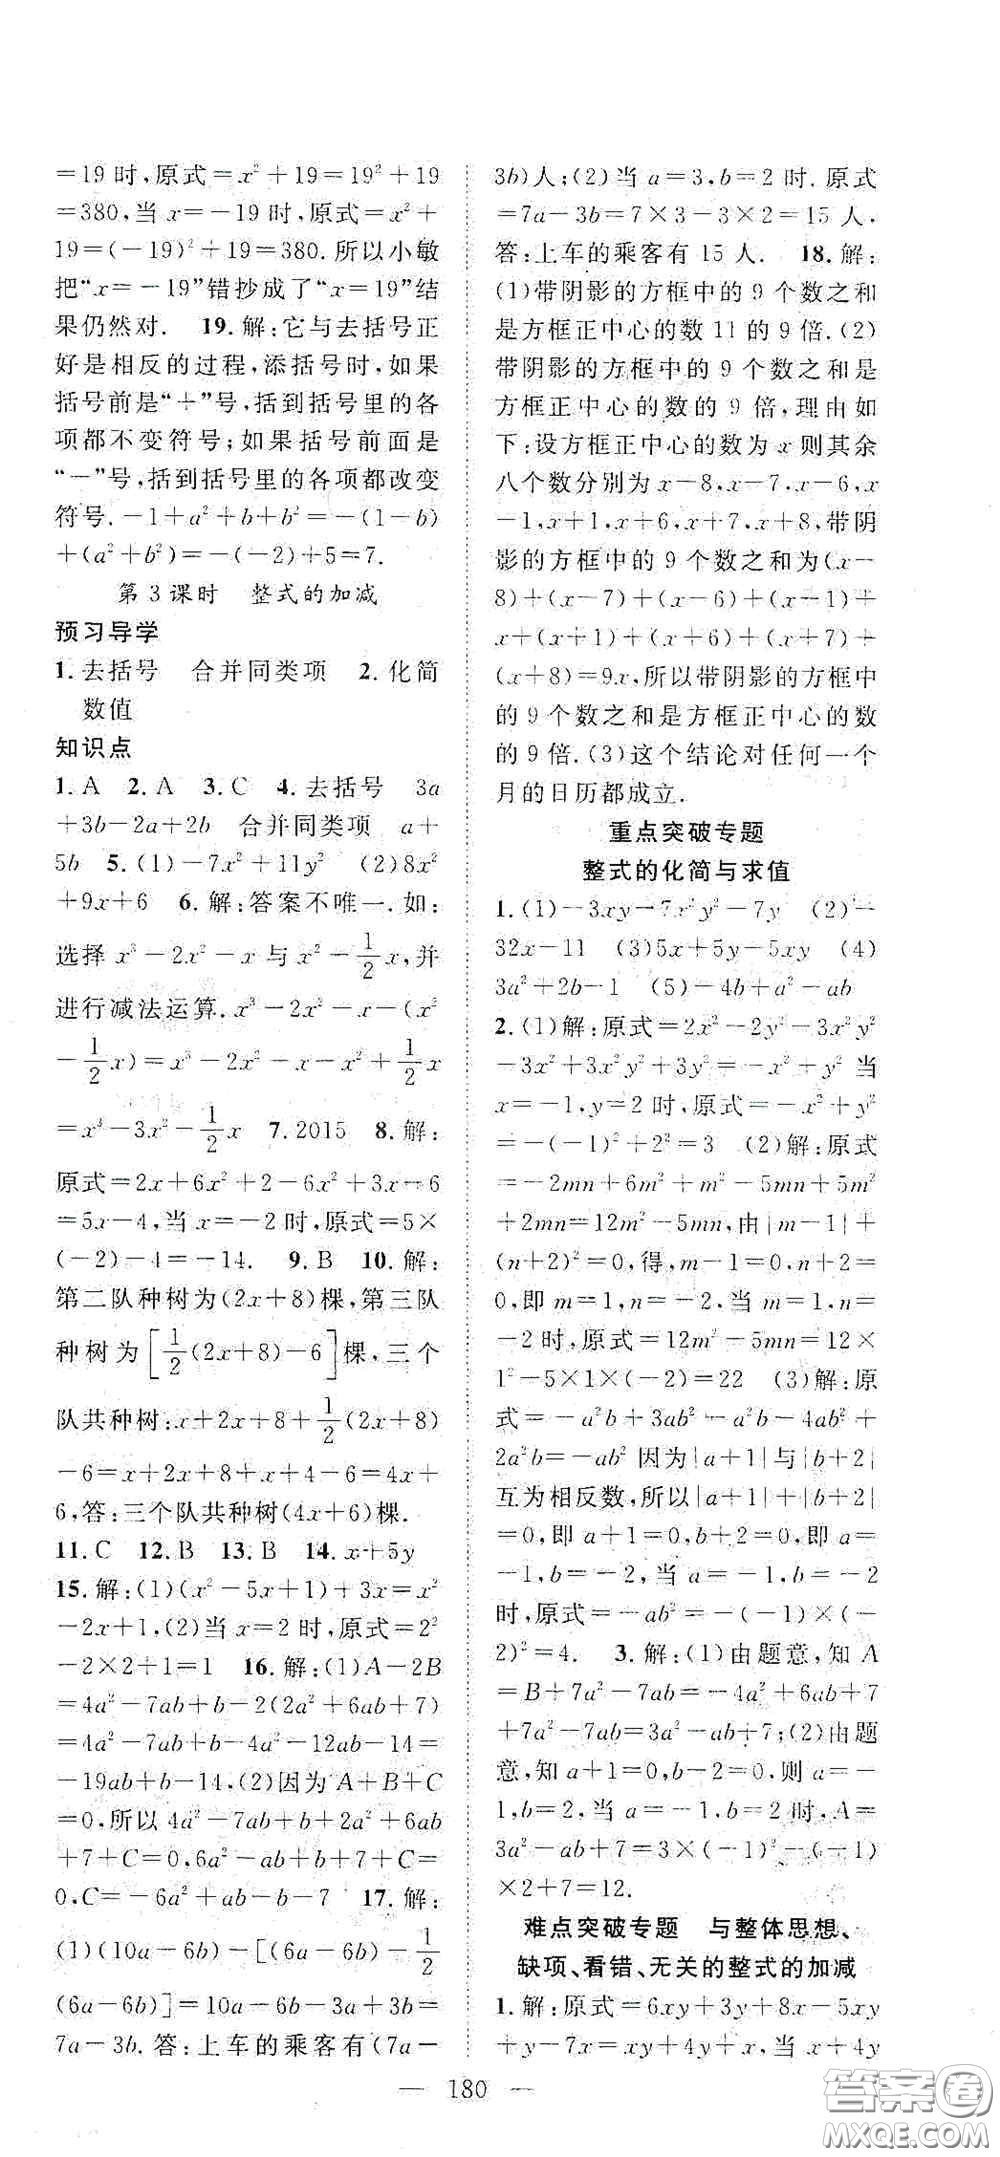 =19时,原式=x²+19=19²+19
=380,当x=-19时,原式=x²+
19=(-19)²+19=380.所以小敏
把“x=-19”错抄成了“x=19”结
果仍然对. 19.解:它与去括号正
好是相反的过程,添括号时,如果
括号前是“+”号,括到括号里的各
项都不变符号;如果括号前面是
“-”号,括到括号里的各项都改变
符号.-1+a²+b+b²=-(1-b)
+(a²+b²)=-(-2)+5=7.
第3课时 整式的加减
预习导学
1.去括号 合并同类项 2.化简
数值
知识点
1.A 2.A 3.C 4.去括号 3a
+3b-2a+2b 合并同类项 a+
5b 5.(1)-7x²+11y² (2)8x²
+9x+6 6.解:答案不唯一.如:
选择x³-2x²-x与x²-1/2x,并
进行减法运算.x³-2x²-x-(x²
-1/2x)=x³-2x²-x-x²+1/2x
=x³-3x²-1/2x 7.2015 8.解:
原式=2x+6x²+2-6x²+3x-6
=5x-4,当x=-2时,原式=5×
(-2)-4=-14. 9.B 10.解:
第二队种树为(2x+8)棵,第三队
种树为[1/2(2x+8)-6]棵,三个
队共种树:x+2x+8+1/2(2x+8)
-6=x+2x+8+x+4-6=4x+
6,答:三个队共种树(4x+6)棵.
11.C 12.B 13.B 14.x+5y
15.解:(1)(x²-5x+1)+3x=x²
-2x+1,(2)当x=2时,原式=2²
-2×2+1=1 16.解:(1)A-2B
=4a²-7ab+b-2(2a²+6ab+7)
=4a²-7ab+b-4a²-12ab-14=
-19ab+b-14,(2)因为A+B+C
=0,所以4a²-7ab+b+2a²+6ab
+7+C=0,6a²-ab+b+7+C=
0,C=-6a²+ab-b-7 17.解:
(1)(10a-6b)-[(6a-6b)-1/2
(6a-6b)]=10a-6b-3a+3b=
7a-3b.答:上车的乘客有(7a-
3b)人;(2)当a=3,b=2时.原式
=7a-3b=7×3-3×2=15人.
答:上车的乘客有15人. 18.解:
(1)带阴影的方框中的9个数之和
是方框正中心的数11的9倍.(2)
带阴影的方框中的9个数之和是
方框正中心的数的9倍,理由如
下:设方框正中心的数为x则其余
八个数分别为x-8,x-7,x-6,x
-1,x+1,x+6,x+7,x+8,带阴
影的方框中的9个数之和为(x-
8)+(x-7)+(x-6)+(x-1)+
x+(x+1)+(x+6)+(x+7)+
(x+8)=9x,所以带阴影的方框中
的9个数之和是方框正中心的数
的9倍.(3)这个结论对任何一个
月的日历都成立.
重点突破专题
整式的化简与求值
1.(1)-3xy-7x²y²-7y (2)-
32x-11 (3)5x+5y-5xy (4)
3a²+2b-1 (5)-4b+a²-ab
2.(1)解:原式=2x²-2y²-3x²y²
-3x²+3x²y²+3y²=-x²+y²当
x=-1,y=2时,原式=-x²+y²=
-(-1)²+2²=3 (2)解:原式=
-2mn+6m²+m²-5mn+5m²
+2mn=12m²-5mn,由|m-1|+
(n+2)²=0,得,m-1=0,n+2=
0,即m=1,n=-2.当m=1,n=
-2时,原式=12m²-5mn=12×
1²-5×1×(-2)=22 (3)解:原
式=-a²b+3ab²-a²b-4ab²+
2a²b=-ab²因为|a+1|与|b+2|
互为相反数,所以|a+1|+|b+2|
=0,即a+1=0,b+2=0,即a=
-1,b=-2,当a=-1,b=-2
时,原式=-ab²=-(-1)×(-
2)²=4. 3.解:(1)由题意,知A
=B+7a²-7ab=-4a²+6ab+7
+7a²-7ab=3a²-ab+7;(2)由题
意,知a+1=0,b-2=0,则a=-
1,b=2,当a=-1,b=2时,A=
3a²-ab+7=3×(-1)²-(-1)
×2+7=12.
难点突破专题 与整体思想、
缺项、看错、无关的整式的加减
1.解:原式=6xy+3y+8x-5xy
+y-6x=2x+4y+xy,当xy=
180
答案圈
MXQE.COM